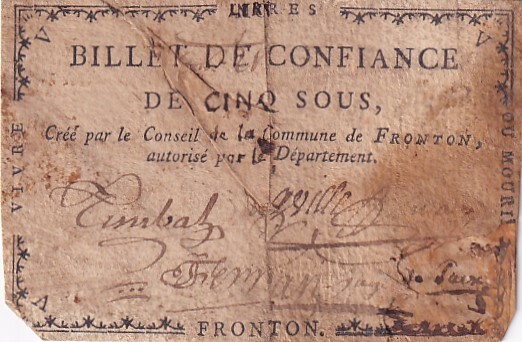 LIBRES
VIVRE
OU MOURIR
BILLET DE CONFIANCE
DE CINQ SOUS,
Créé par le Conseil de la Commune de FRONTON,
autorisé par le Département.
Timbal
FRONTON.